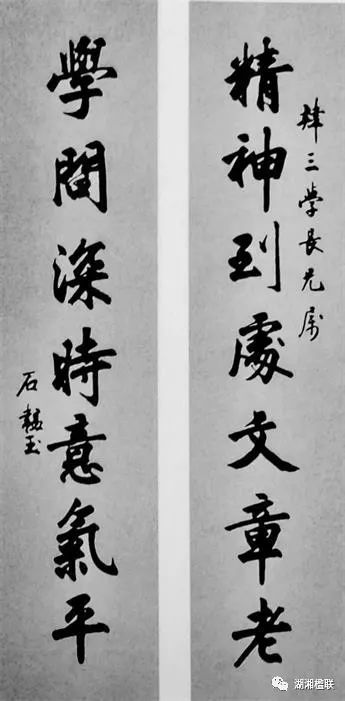 韡三學長兄属
精神到處文章老
學問深時意氣平
石韞玉
湖湘楹联